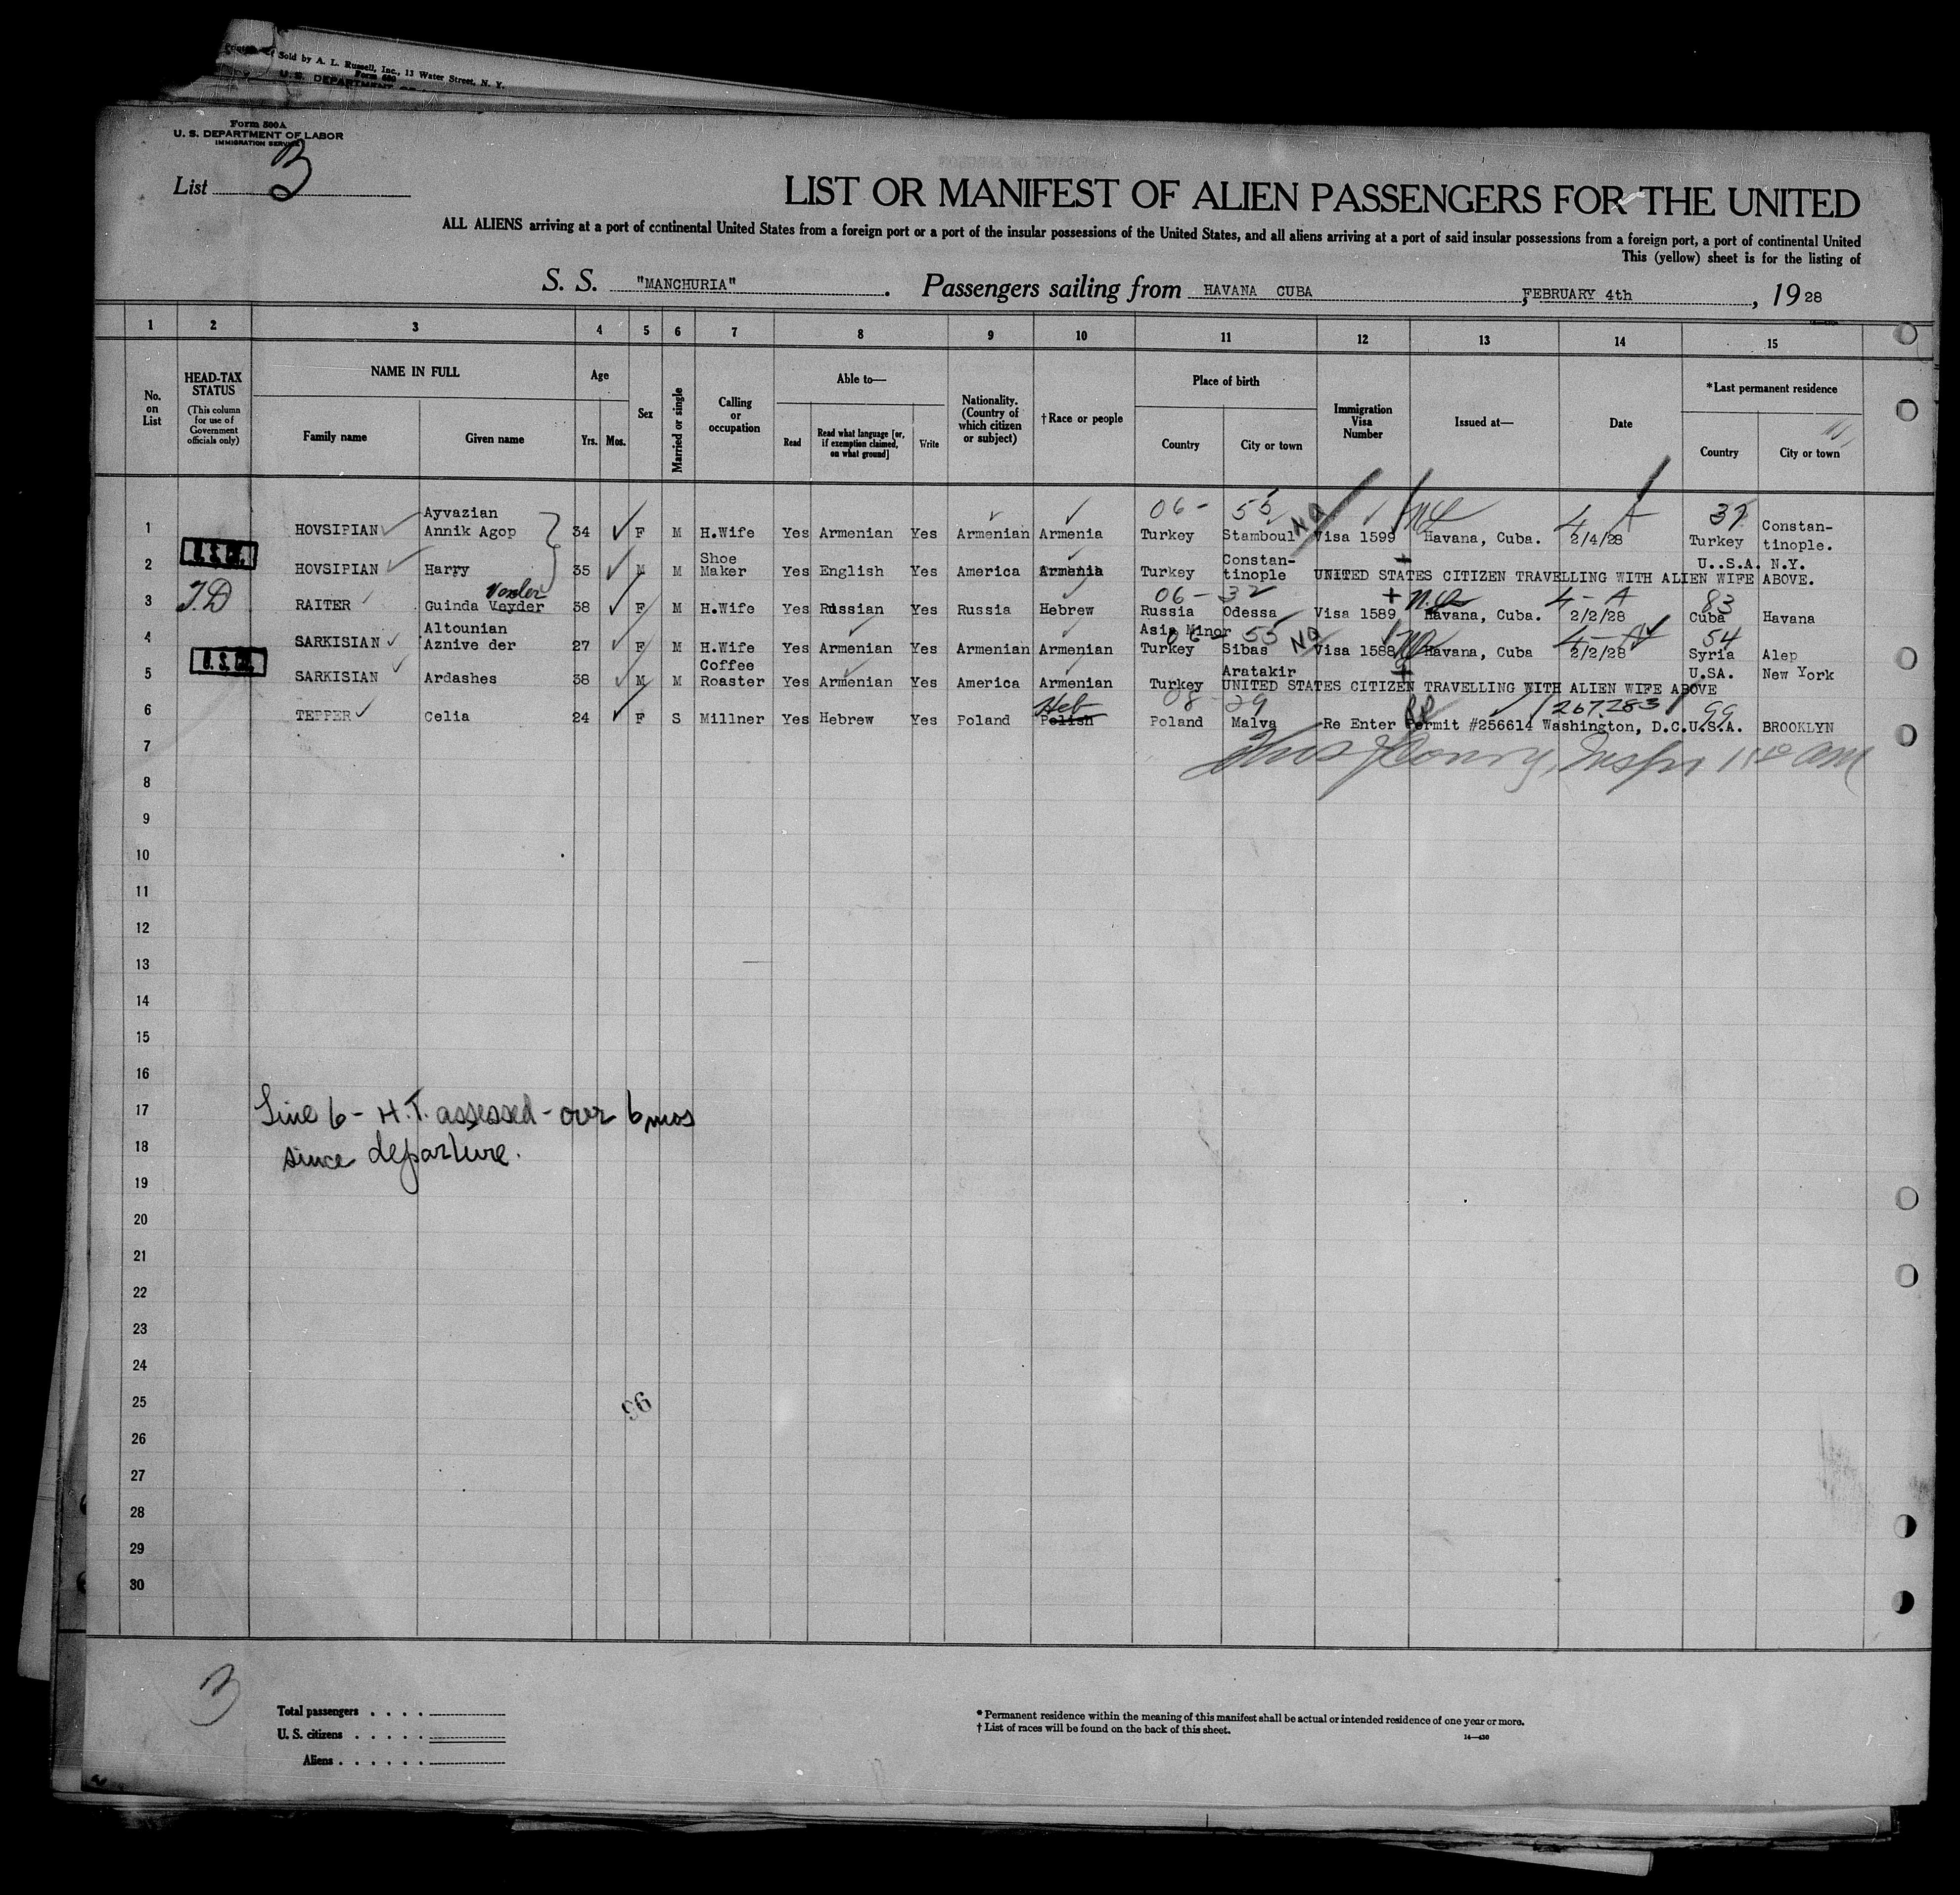 Sold by A. L. Russell, Inc., 13 Water Street, N. Y.
Form 500
U. S. DEPARTMENT OF
Form 500A
U. S. DEPARTMENT OF LABOR
IMMIGRATION SERVICE
List 3
LIST OR MANIFEST OF ALIEN PASSENGERS FOR THE UNITED
ALL ALIENS arriving at a port of continental United States from a foreign port or a port of the insular possessions of the United States, and all aliens arriving at a port of said insular possessions from a foreign port, a port of continental United
This (yellow) sheet is for the listing of
S. S. "MANCHURIA". Passengers sailing from HAVANA CUBA, FEBRUARY 4th, 1928
1 2 3 4 5 6 7 8 9 10 11 12 13 14 15
No. on List
HEAD-TAX STATUS
(This column for use of Government officials only)
NAME IN FULL
Family name
Given name
Age
Yrs.
Mos.
Sex
Married or single
Calling or occupation
Able to—
Read
Read what language [or, if exemption claimed, on what ground]
Write
Nationality. (Country of which citizen or subject)
†Race or people
Place of birth
Country
City or town
Immigration Visa Number
Issued at—
Date
*Last permanent residence
Country
City or town
06 - 55 NA 4 A 37
1 HOVSIPIAN Ayvazian Annik Agop 34 F M H.Wife Yes Armenian Yes Armenian Armenia Turkey Stamboul Visa 1599 Havana, Cuba. 2/4/28 Turkey Constan-tinople.
U.S.C.
2 HOVSIPIAN Harry 35 M M Shoe Maker Yes English Yes America Armenia Turkey Constan-tinople UNITED STATES CITIZEN TRAVELLING WITH ALIEN WIFE ABOVE. U..S.A. N.Y.
06 - 32 4 - A 83
3 T.D RAITER Guinda Veyder 38 F M H.Wife Yes Russian Yes Russia Hebrew Russia Odessa Visa 1589 Havana, Cuba. 2/2/28 Cuba Havana
06 - 55 NA 4 - A 54
4 SARKISIAN Altounian Aznive der 27 F M H.Wife Yes Armenian Yes Armenian Armenian Asia Minor Turkey Sibas Visa 1588 Havana, Cuba 2/2/28 Syria Alep
U.S.C.
5 SARKISIAN Ardashes 38 M M Coffee Roaster Yes Armenian Yes America Armenian Turkey Aratakir UNITED STATES CITIZEN TRAVELLING WITH ALIEN WIFE ABOVE U.SA. New York
Heb 08 - 29 RP 267283 99
6 TEPPER Celia 24 F S Millner Yes Hebrew Yes Poland Polish Poland Malva Re Enter Permit #256614 Washington, D.C. U.S.A. BROOKLYN
7
8
9
10
11
12
13
14
15
16
17
Line 6 - H.T. assessed - over 6 mos
18
since departure.
19
20
21
22
23
24
25
96
26
27
28
29
30
3
Total passengers
U. S. citizens
Aliens
* Permanent residence within the meaning of this manifest shall be actual or intended residence of one year or more.
† List of races will be found on the back of this sheet.
14—430